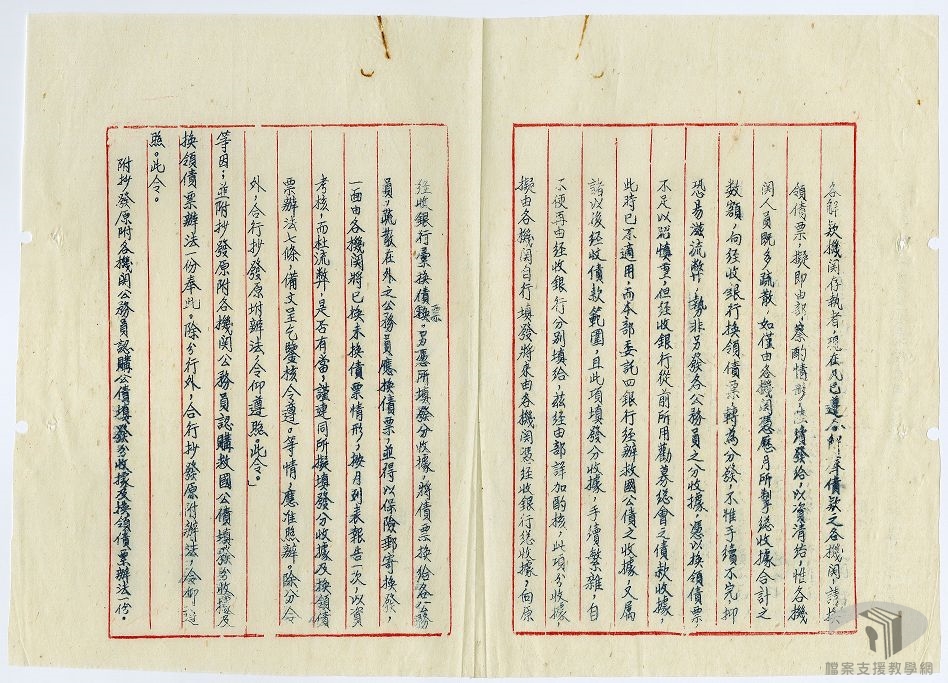 各解款機関存執者,現在凡已遵令解草債款之各機関,請換
領債票,擬即由部斟酌情形,陸續發給,以資清結,惟各機
関人員既多疏散,如僅由各機関憑歷月所掣總收據合計之
數額,向经收銀行換領債票轉為分發,不惟手續不完抑
恐易滋流弊,勢非另發各公務員之分收據,憑以換領債票
不足以昭慎重,但经收銀行從前所用勸募總會之債款收據,
此時已不適用,而本部委託四銀行经辦救國公債之收據,又属
諸以後经收債款範圍,且此項填發分收據,手續繁雜,自
不便再由经收銀行分别填给,茲经由部詳加酌核,此項分收據
擬由各機関自行填發將來由各機関憑经收銀行總收據,向原
经收銀行彙換債票。另憑所填發分收據,將債票換给各公務
員,疏散在外之公務員應換債票,並得以保險郵寄換發,
一面由各機関將已換未換債票情形,按月列表報告一次,以資
考核,而杜流弊,是否有當,謹連同所擬填發分收據及換領債
票辦法七條,備文呈乞鑒核令遵。等情,應准照辦。除分令
外,合行抄發原附辦法令仰遵照。此令。」
等因;並附抄發原附各機関公務員認購救國公債填發分收據及
換領債票辦法一份奉此。除分行外,合行抄發原附辦法,令仰遵
照。此令。
附抄發原附各機関公務員認購公債填發分收據及換領債票辦法一份。
檔案支援教學網